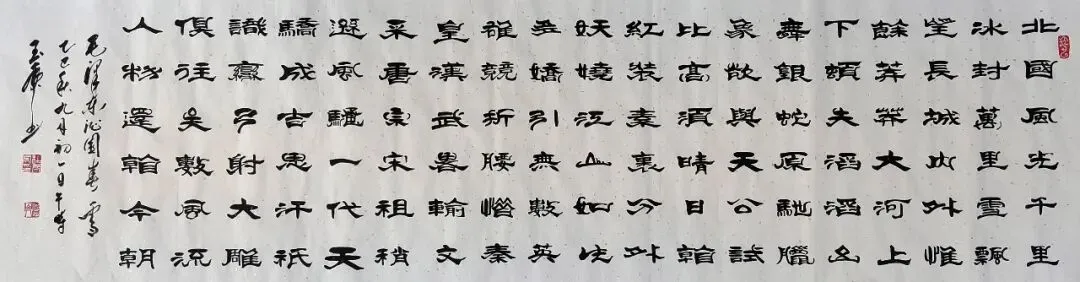 北國風光千里
冰封萬里雪飄
望長城內外惟
餘莽莽大河上
下頓失滔滔山
舞銀蛇原馳臘
象欲與天公試
比高須晴日看
紅裝素裹分外
妖嬈江山如此
多嬌引無數英
雄競折腰惜秦
皇漢武畧輸文
采唐宗宋祖稍
遜風騷一代天
驕成吉思汗祇
識彎弓射大雕
俱往矣數風流
人物還看今朝
毛澤東沁園春雪
乙巳秋九月初一日午時